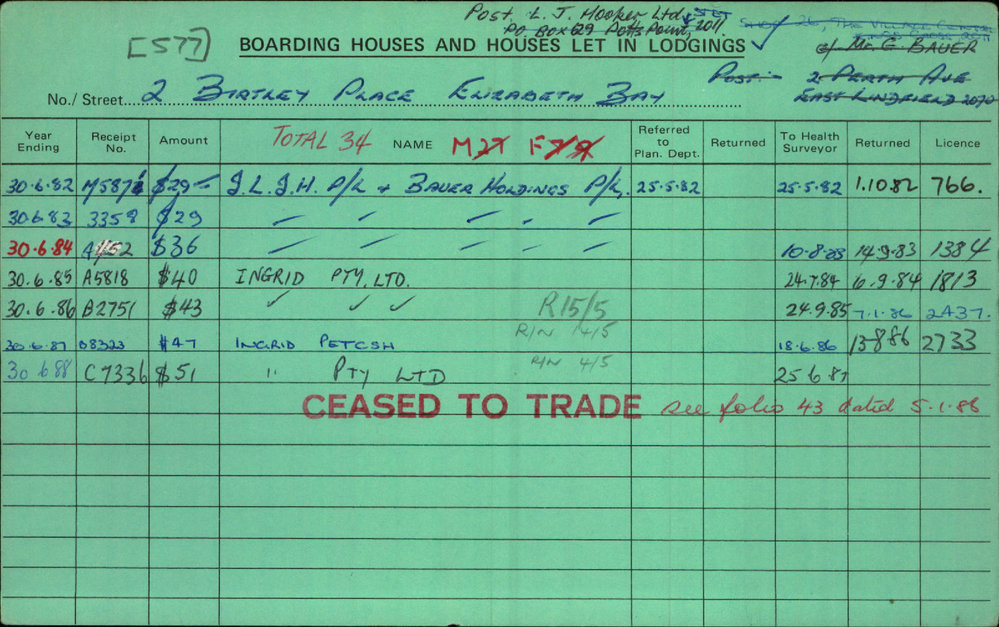 Post. L. J. Hooker Ltd,
PO Box 629 Potts Point, 2011.
[577]
BOARDING HOUSES AND HOUSES LET IN LODGINGS
c/ Mr G. BAUER
Post:-
2 PERTH AVE
EAST LINDFIELD 2070
No./ Street... 2 BIRTLEY PLACE ELIZABETH BAY
Year Ending Receipt No. Amount TOTAL 34 NAME M27 F Referred to Plan. Dept. Returned To Health Surveyor Returned Licence
30.6.82 $29 J.L.J.H. P/L + BAUER HOLDINGS P/L. 25.5.82 25-5-82 1.10.82 766.
30.6.83 3358 $29 " " " " "
30.6.84 $36 " " " " " 10-8-83 14.9.83 1384
30.6.85 A5818 $40 INGRID PTY. LTD. 24.7.84 6.9.84 1813
30.6.86 B2751 $43 ✓ ✓ ✓ R15/5 24.9.85 7.1.86 2437.
R/N 14/5
30.6.87 08323 $47 INGRID PETCSH 18.6.86 13886 2733
R/N 4/5
30 6.88 C7336 $51 " PTY LTD 25 6.87
CEASED TO TRADE see folio 43 dated 5.1.88